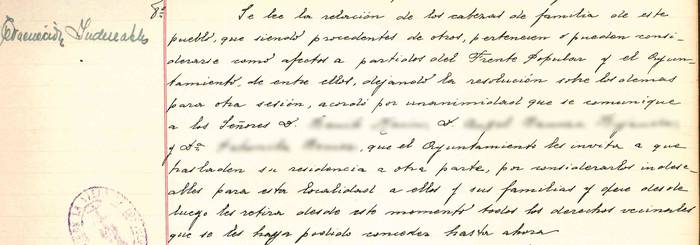 8º
Evacuación Indeseables
Se lee la relación de los cabezas de familia de este
pueblo, que siendo procedentes de otros, pertenecen o pueden consi-
derarse como afectos a partidos del Frente Popular y el Ayun-
tamiento, de entre ellos, dejando la resolución sobre los demas
para otra sesión, acordó por unanimidad que se comunique
a los Señores D. D.
y Dª que el Ayuntamiento les invita a que
trasladen su residencia a otra parte, por considerarlos indese-
ables para esta localidad a ellos y sus familias y que desde
luego les retira desde este momento todos los derechos vecinales
que se les haya podido conceder hasta ahora